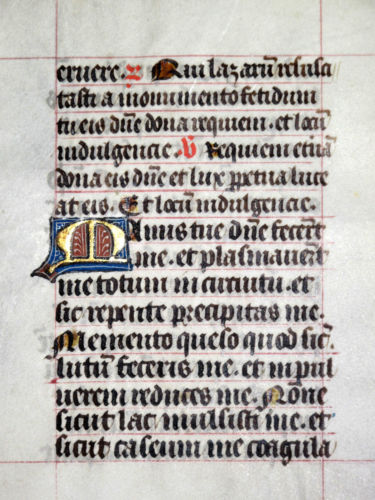 eruere. R Qui lazarū resusci
tasti a monumento fetidum
tu eis dn̄e dona requiem. et locū
indulgencie. V Requiem eternā
dona eis dn̄e et lux ꝑpetua luce
at eis. Et locum indulgencie.
Manus tue dn̄e fecerūt
me. et plasmauerūt
me totum in circuitu. et
sic repente precipitas me.
Memento queso quod sic̄
lutū feceris me. et in pul
uerem reduces me. Nōne
sicut lac mulsisti me. et
sicut caseum me coagula